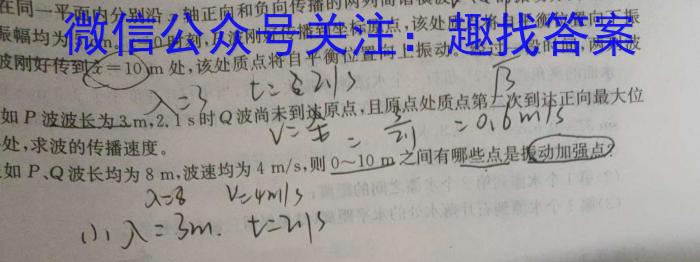 在同一平面内分别沿 轴正向和负向传播的两列简谐横波
振幅均为
微信公众号关注：趣找答案
波刚好传到x=10 m 处,该处质点将自平衡位置向上振动。
两列波
λ=3
t=2.1s
如 P 波波长为 3 m,2.1 s 时 Q 波尚未到达原点,且原点处质点第二次到达正向最大位
处,求波的传播速度。
=0.6m/s
如 P、Q 波长均为 8 m,波速均为 4 m/s,则 0～10 m 之间有哪些点是振动加强点?
λ=8 V=4m/s
(1) λ=3m. t=2.1s